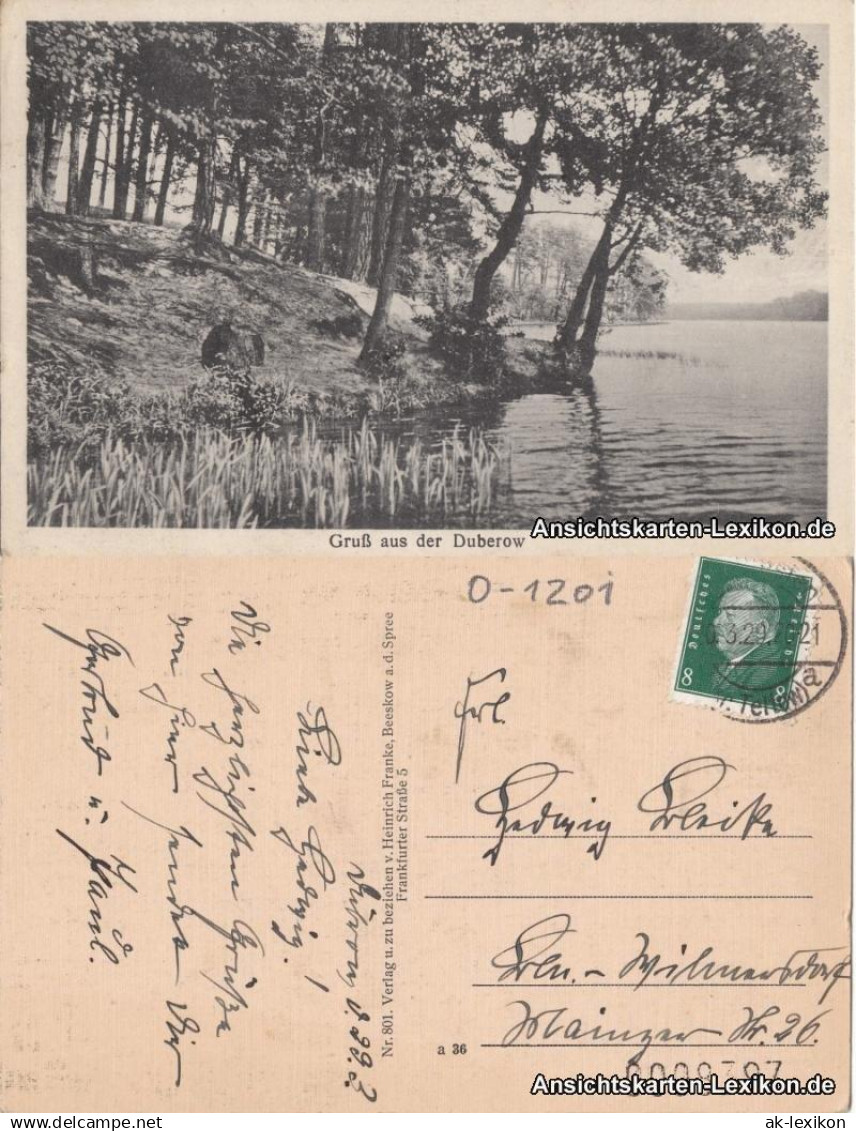 Gruß aus der Duberow
Ansichtskarten-Lexikon.de
O-1201
Deutsches Reich
8 8
6.3.29. 21
Teltow) a
Nr. 801. Verlag u. zu beziehen v. Heinrich Franke, Beeskow a. d. Spree
Frankfurter Straße 5
Liebe Hedwig!
Die herzlichsten Grüße
von hier sendet Dir
Gertrud u. Paul.
Frl.
Hedwig
Bln. - Wilmersdorf
Mainzer Str. 26.
a 36
Ansichtskarten-Lexikon.de
ak-lexikon